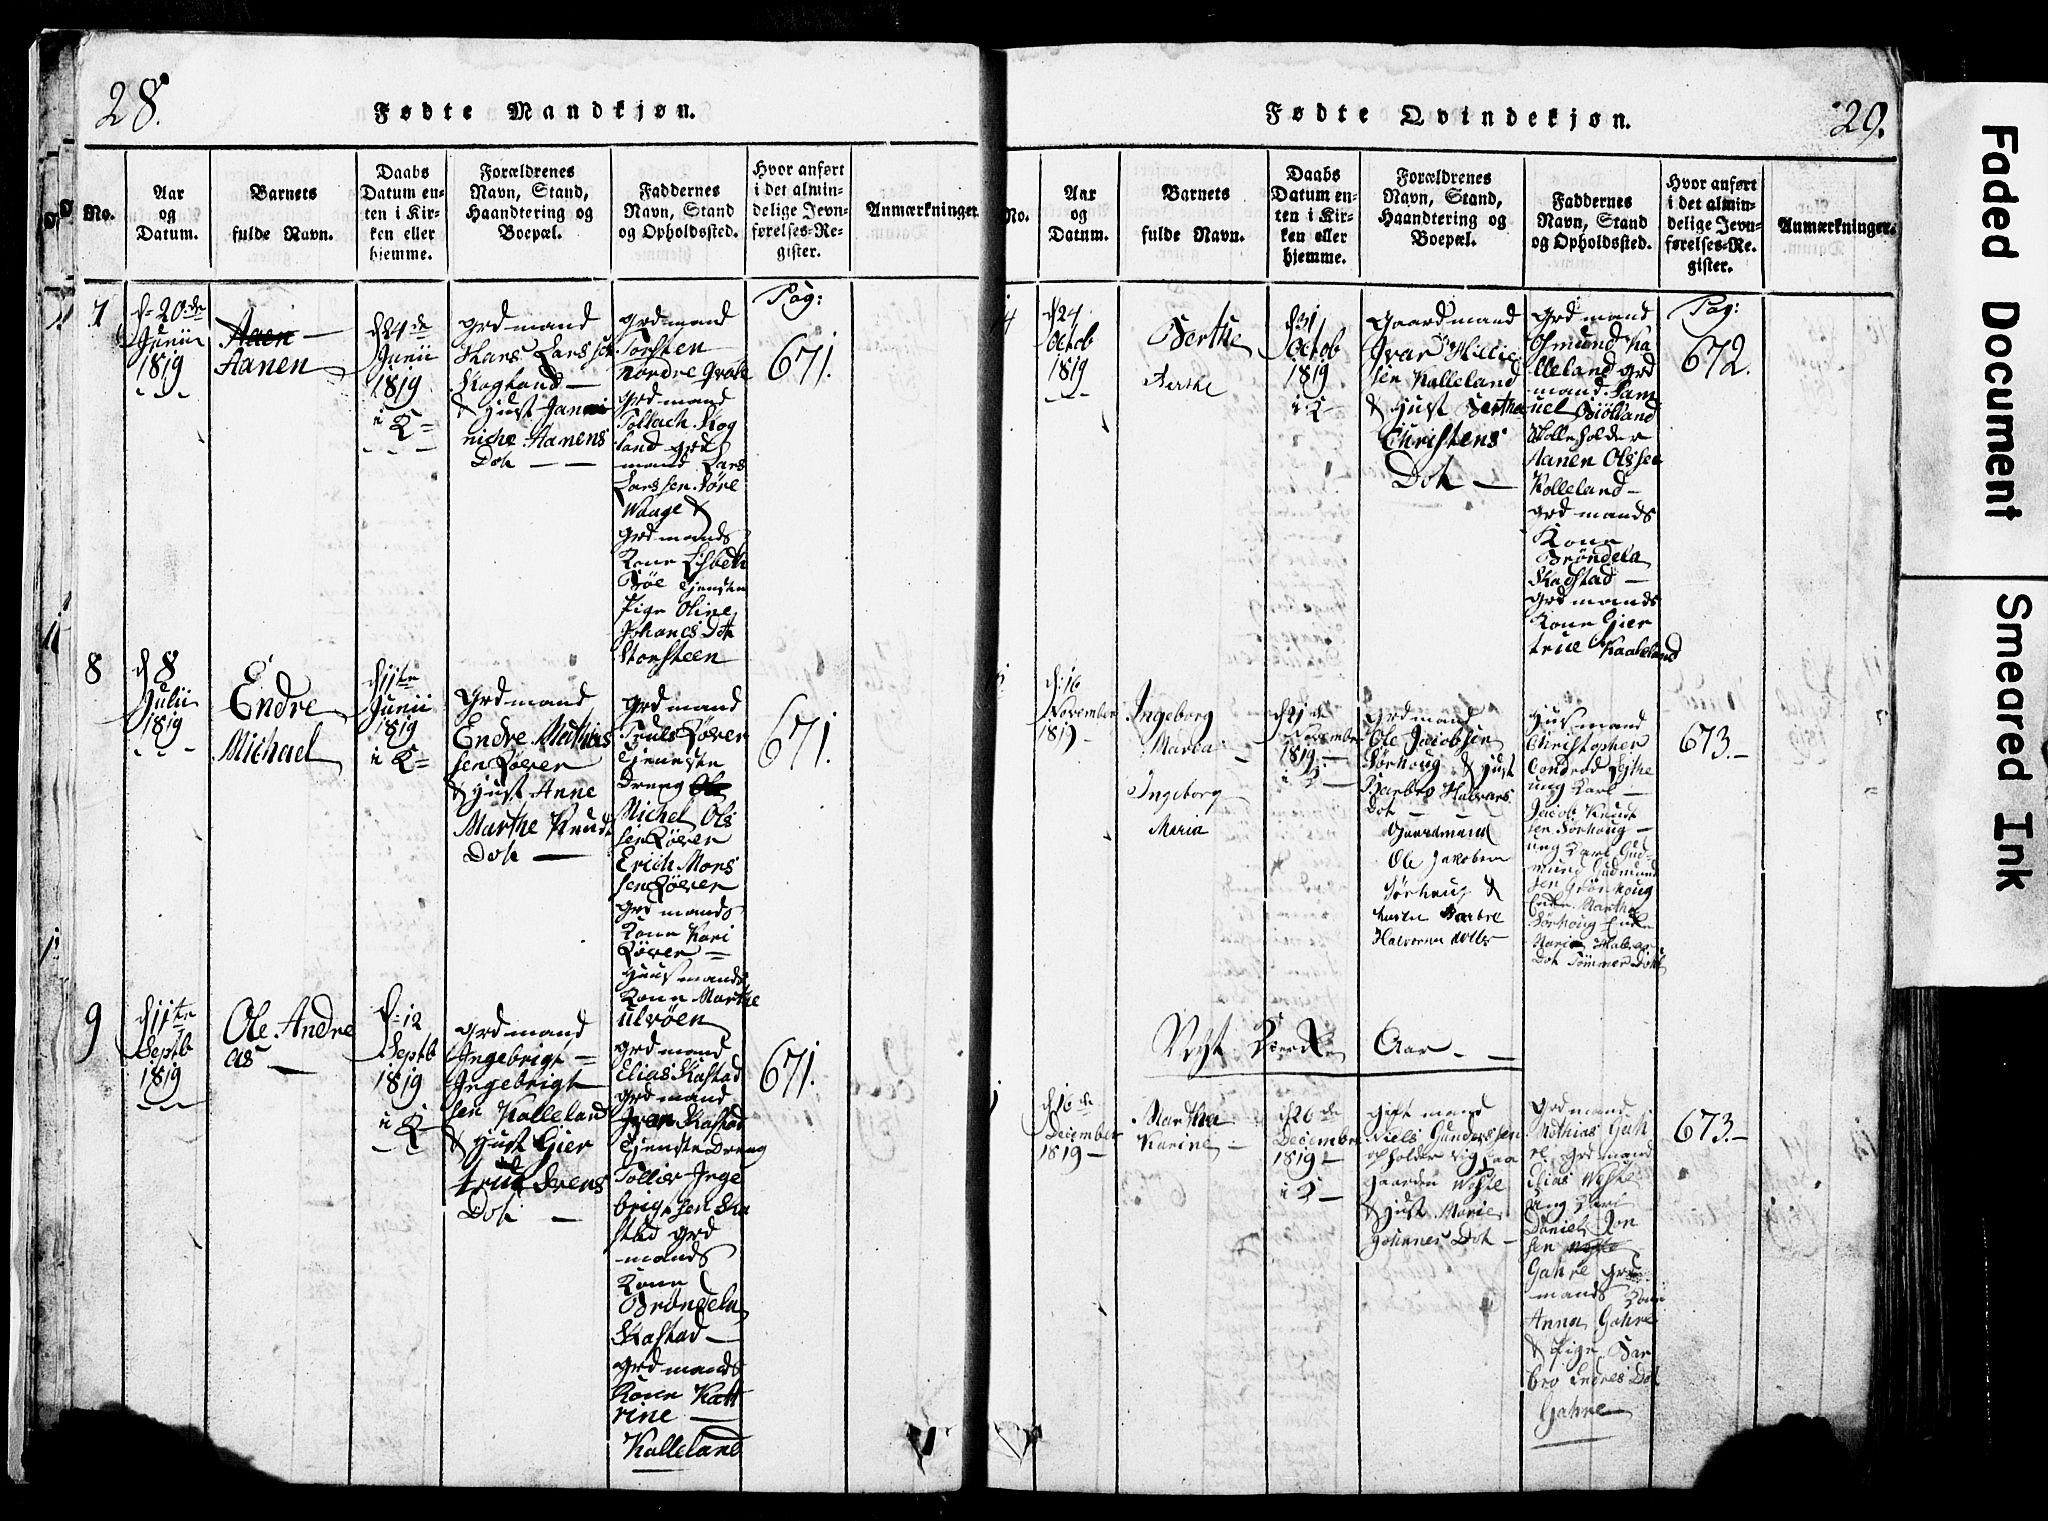 28.
Fødte Mandkjøn.
No.
Aar
og
Datum.
Barnets
fulde Navn.
Daabs
Datum en-
ten i Kir-
ken eller
hjemme.
Forældrenes
Navn, Stand,
Haandtering og
Boepæl.
Faddernes
Navn, Stand
og Opholdssted.
Hvor anført
i det almin-
delige Jevn-
førelses-Re-
gister.
Anmærkninger.
7
d. 20de
Junii
1819
Aaen
Aanen
d24de
Junii
1819
i K
grd mand
Lars Larssen
Skogland
& Hust Jan
niche Aanens
Dot
grd mand
Torsten
nordre
grd mand
Tollach Skog
land grd
mand Lars
Larssen Søre
Waage &
grd mands
Kone Lisbeth
Bøe tjeneste
Pige Oline
Johanes Dtt
Storsteen
Pag:
671.
8
d 8
Julii
1819
Endre
Michael
d11te
Junii
1819
i K
grd mand
Endre Mathis
sen Røver
& Hust Anne
Marthe Knuds
Dot
grd mand
Truls Røver
tjeneste
Dreng
Michel Ols
sen Røver
Erich Mons
sen Røver
grd mands
Kone Kari
Røver
Huusmands
Kone Marthe
ulvøen
671.
9
d11te
Septb
1819
Ole Andre
as
d. 12
Septb
1819
i K
grd mand
Ingebrigt
Ingebrigt
sen Kalleland
& Hust Gier
Dot
grd mand
Elias Kastad
grd mand
Iver Kastad
tjeneste Dreng
Tollier Inge
brigtsen Ska
stad grd
mands
Kone
Brøndela
Skastad
grd mands
Kone Kath
rine
Kalleland
671.
29.
Fødte Qvindekjøn.
No.
Aar
og
Datum.
Barnets
fulde Navn.
Daabs
Datum en-
ten i Kir-
ken eller
hjemme.
Forældrenes
Navn, Stand,
Haandtering og
Boepæl.
Faddernes
Navn, Stand
og Opholdssted.
Hvor anført
i det almin-
delige Jevn-
førelses-Re-
gister.
Anmærkninger.
d24
Octob
1819
Berthe
Berthe
d31
Octob
1819
i K
Gaardmand
Ivar Willie
sen Kalleland
& Hust Bertha
Christens
Dot
grd mand
Osmund Ka
lleland grd
mand Sam
uel Biølland
Aanen Olssen
Kolleland
grd mands
Kone
Brøndela
Skastad
grd mands
Kone Gier
true Kaaleland
Pag:
672.
d. 16
November
1819
Ingeborg
Maria
Ingeborg
Maria
d21de
November
1819
i K
grd mand
Ole Jacobsen
Sørhoug & Hust
Barbro Halvors
Dot
Gaardmand
Ole Jakobsen
Sørhaug &
hustru Barbre
Halvorsen
Husmand
Christopher
Condrad
ung Karl
Jacob Knudt
sen Sørhoug
ung Karl Gud-
mund Gudmund
sen Grønhoug
Enke Marthe
Sørhoug Enke
Maria
Dot
673.
Nyt Aar
d 16de
December
1819
Martha
Karine
d26de
December
1819
i K
gift mand
Niels Gunderssen
opholder sig paa
Gaarden
& Hust Marie
Johannes Dot
grd mand
Mathias Gah
re grd mand
Elias
ung Karl
Daniel Jon
sen
Gahre grd
mands Kone
Anna Gahre
& Pige Bar
bro Endres Dot
Gahre
673.
Faded Document
Smeared Ink